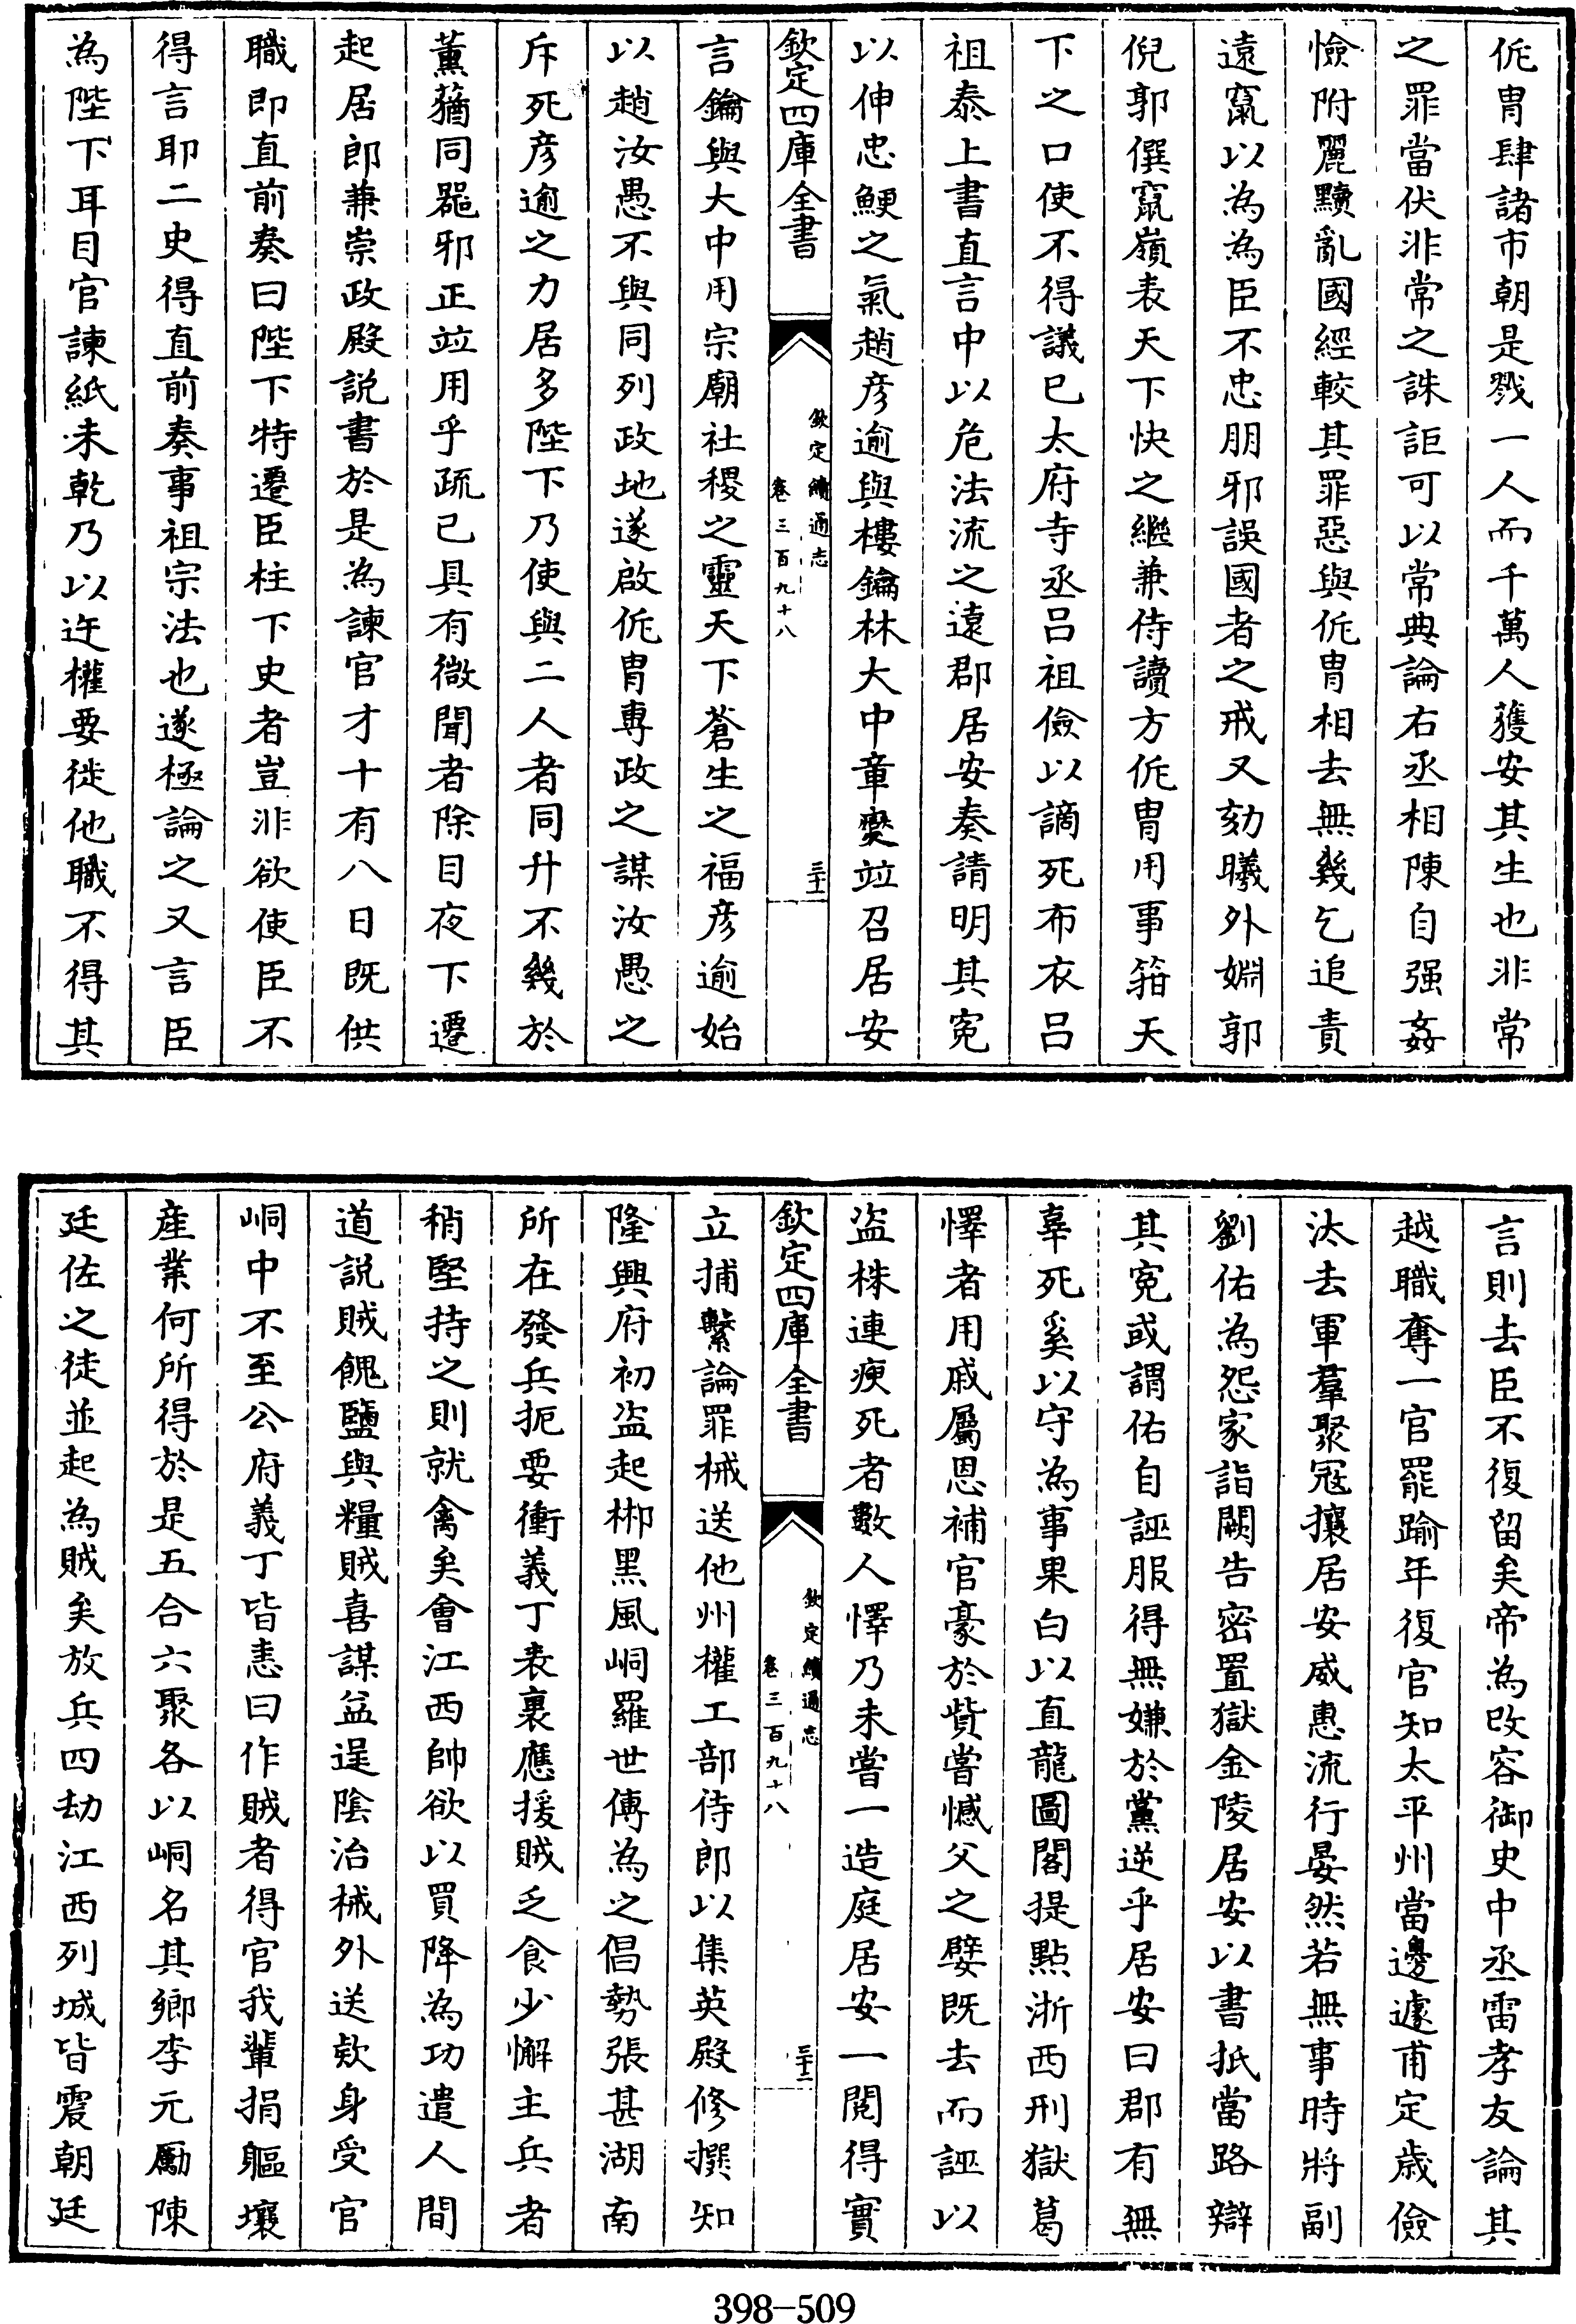 侂胄肆諸市朝是戮一人而千萬人獲安其生也非常
之罪當伏非常之誅詎可以常典論右丞相陳自强姦
憸附麗黷亂國經較其罪惡與侂胄相去無幾乞追責
遠竄以為為臣不忠朋邪誤國者之戒又劾曦外婣郭
倪郭僎竄嶺表天下快之繼兼侍讀方侂胄用事箝天
下之口使不得議已太府寺丞呂祖儉以謫死布衣呂
祖泰上書直言中以危法流之遠郡居安奏請明其寃
以伸忠鯁之氣趙彦逾與樓鑰林大中章爕竝召居安
欽定四庫全書
欽定續通志
卷三百九十八
三十一
言鑰與大中用宗廟社稷之靈天下蒼生之福彦逾始
以趙汝愚不與同列政地遂啟侂胄專政之謀汝愚之
斥死彦逾之力居多陛下乃使與二人者同升不幾於
薰蕕同噐邪正竝用乎疏已具有微聞者除目夜下遷
起居郎兼崇政殿説書於是為諫官才十有八日既供
職即直前奏曰陛下特遷臣柱下史者豈非欲使臣不
得言耶二史得直前奏事祖宗法也遂極論之又言臣
為陛下耳目官諫紙未乾乃以迕權要徙他職不得其
言則去臣不復留矣帝為改容御史中丞雷孝友論其
越職奪一官罷踰年復官知太平州當邊遽甫定歲儉
汰去軍羣聚冦攘居安威惠流行晏然若無事時將副
劉佑為怨家詣闕告密置獄金陵居安以書抵當路辯
其寃或謂佑自誣服得無嫌於黨逆乎居安曰郡有無
辜死奚以守為事果白以直龍圖閣提點浙西刑獄葛
懌者用戚屬恩補官豪於貲嘗憾父之嬖既去而誣以
盜株連瘐死者數人懌乃未嘗一造庭居安一閱得實
欽定四庫全書
欽定續通志
卷三百九十八
三十二
立捕繫論罪械送他州權工部侍郎以集英殿修撰知
隆興府初盜起郴黑風峒羅世傳為之倡勢張甚湖南
所在發兵扼要衝義丁表裏應援賊乏食少懈主兵者
稍堅持之則就禽矣會江西帥欲以買降為功遣人間
道説賊餽鹽與糧賊喜謀益逞陰治械外送欵身受官
峒中不至公府義丁皆恚曰作賊者得官我輩捐軀壞
產業何所得於是五合六聚各以峒名其鄉李元勵陳
廷佐之徒並起為賊矣放兵四劫江西列城皆震朝廷
398-509